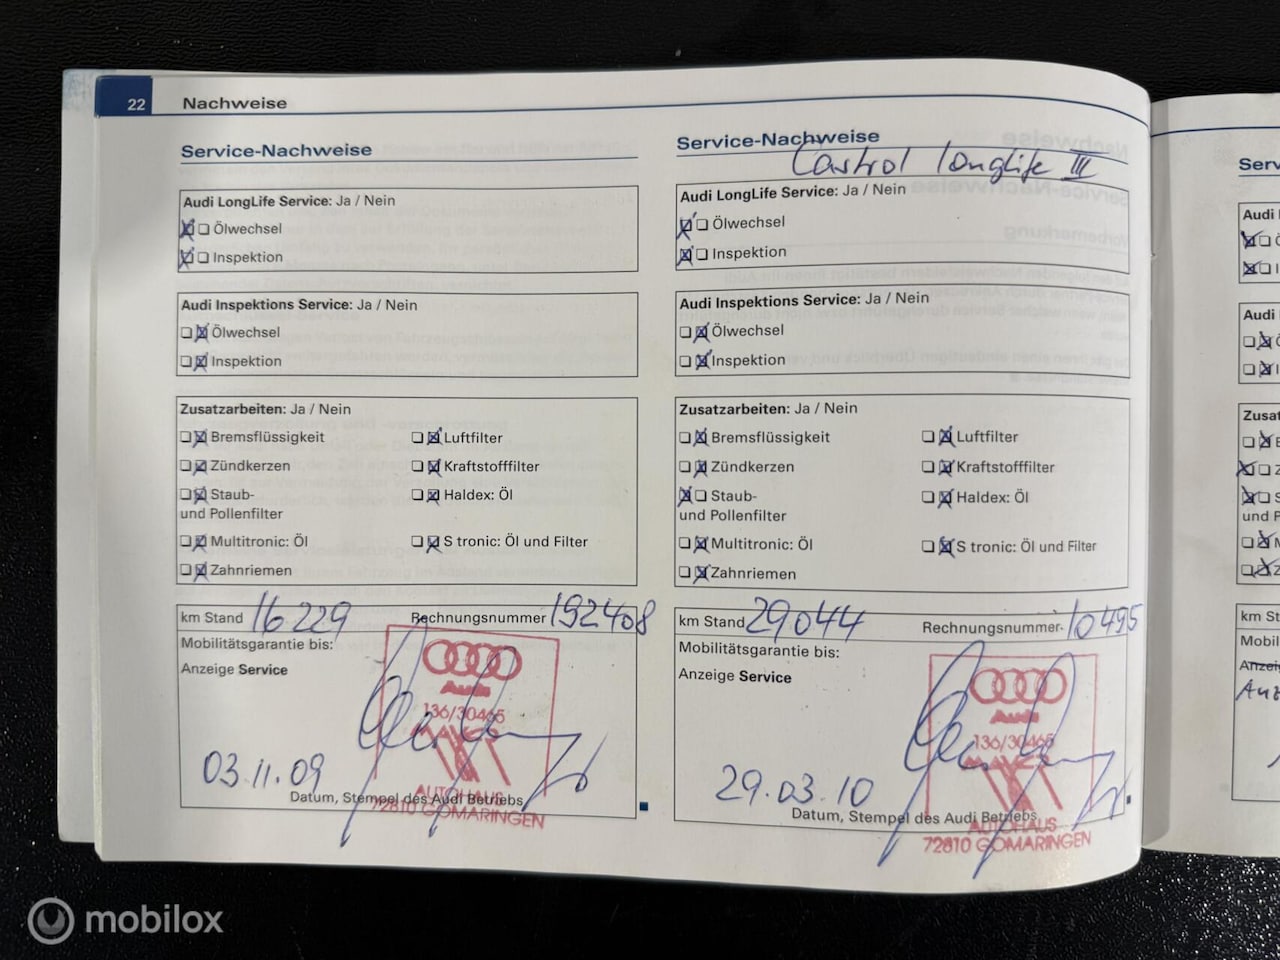 22 Nachweise
Service-Nachweise
Audi LongLife Service: Ja / Nein
Ölwechsel
Inspektion
Audi Inspektions Service: Ja / Nein
Ölwechsel
Inspektion
Zusatzarbeiten: Ja / Nein
Bremsflüssigkeit Luftfilter
Zündkerzen Kraftstofffilter
Staub- Haldex: Öl
und Pollenfilter
Multitronic: Öl S tronic: Öl und Filter
Zahnriemen
km Stand 16229 Rechnungsnummer 192408
Mobilitätsgarantie bis:
Anzeige Service
Audi
136/30465
03.11.09
AUTOHAUS
Datum, Stempel des Audi Betriebs
72810 GOMARINGEN
Service-Nachweise
Castrol longlife III
Audi LongLife Service: Ja / Nein
Ölwechsel
Inspektion
Audi Inspektions Service: Ja / Nein
Ölwechsel
Inspektion
Zusatzarbeiten: Ja / Nein
Bremsflüssigkeit Luftfilter
Zündkerzen Kraftstofffilter
Staub- Haldex: Öl
und Pollenfilter
Multitronic: Öl S tronic: Öl und Filter
Zahnriemen
km Stand 29044 Rechnungsnummer 10495
Mobilitätsgarantie bis:
Anzeige Service
Audi
136/30465
29.03.10
Datum, Stempel des Audi Betriebs
AUTOHAUS
72810 GOMARINGEN
Audi
Audi
km St
mobilox